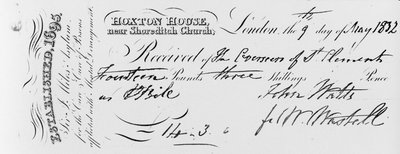 HOXTON HOUSE,
near Shoreditch Church;
London. the 9th day of May 1832
Received of The Overseers of St Clements
Fourteen Pounds three Shillings Pence
as P Bill
John Watts
£ 14 - 3 -
ESTABLISHED, 1695.
Sir J. Miles's Asylum
for the Care & Cure of Persons
afflicted with Mental Derangement.